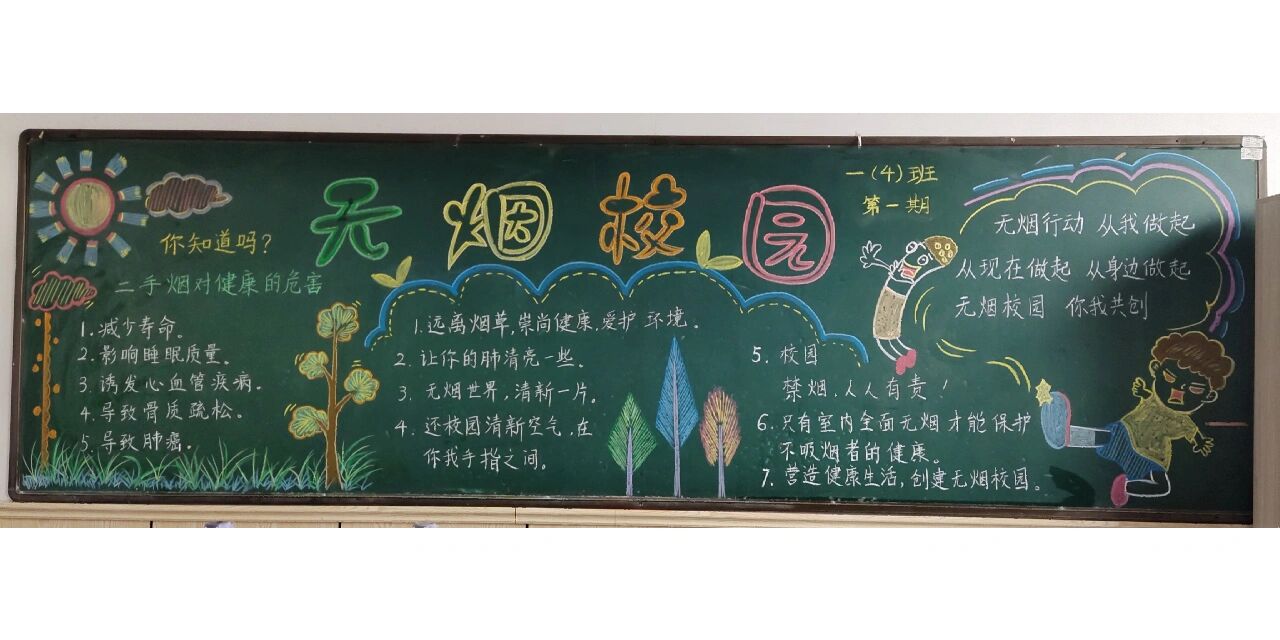 无烟校园
一(4)班
第一期
你知道吗?
二手烟对健康的危害
1.减少寿命。
2.影响睡眠质量。
3.诱发心血管疾病。
4.导致骨质疏松。
5.导致肺癌。
1.远离烟草,崇尚健康,爱护环境。
2.让你的肺清亮一些。
3.无烟世界,清新一片。
4.还校园清新空气,在
你我手指之间。
5.校园
禁烟,人人有责!
6.只有室内全面无烟才能保护
不吸烟者的健康。
7.营造健康生活,创建无烟校园。
无烟行动 从我做起
从现在做起 从身边做起
无烟校园 你我共创